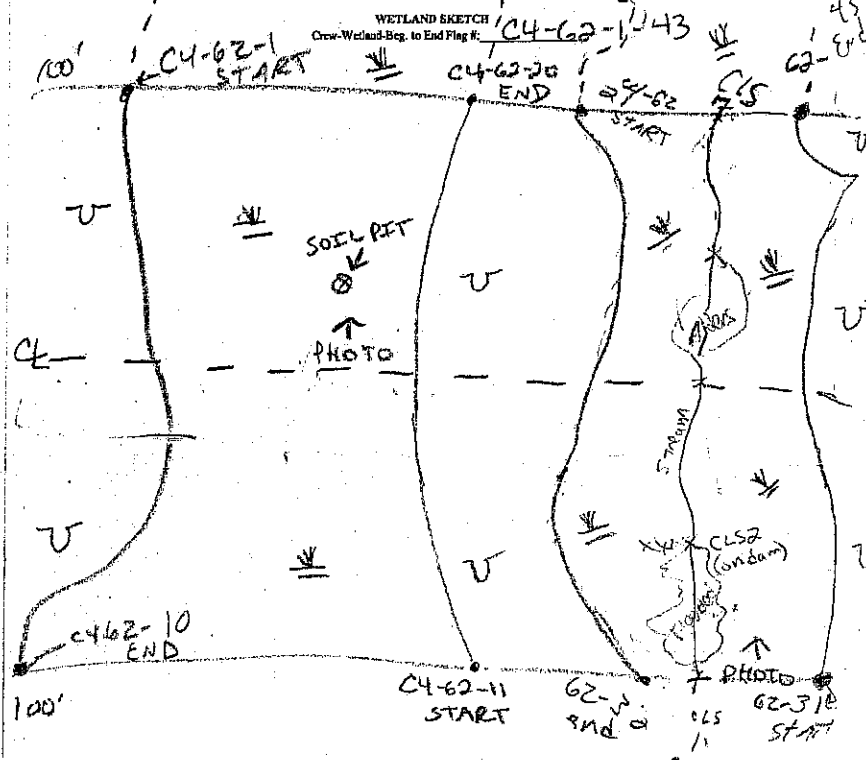 WETLAND SKETCH
Crew-Wetland-Beg. to End Flag #: C4-62-1-43
100'
C4-62-1
START
C4-62-20
END
C4-62
START
CLS
62-
43
U
U
U
U
SOIL PIT
PHOTO
CL
STREAM
U
U
CLS2
(ondam)
Flooded
C462-10
END
100'
C4-62-11
START
62-3
end
PHOTO
CLS
62-31
START